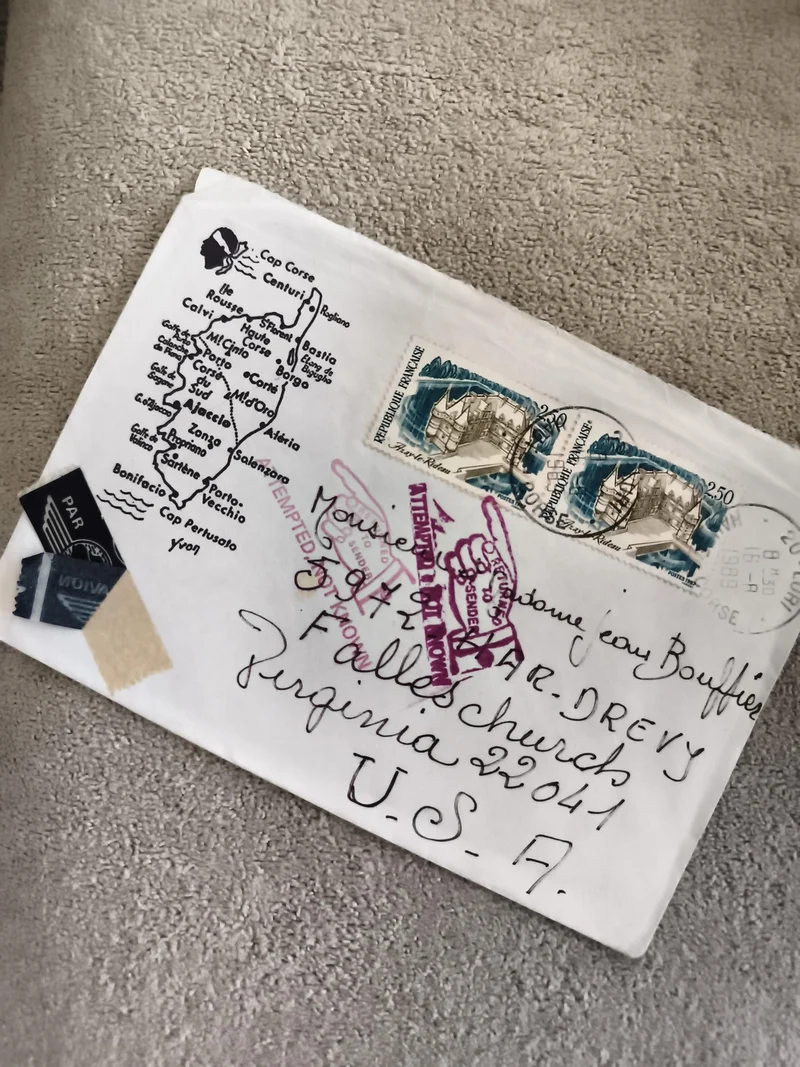 Cap Corse
Centuri
Rogliano
Ile
Rousse
St Florent
Calvi
Haute
Corse
Bastia
Etang de
Biguglia
Golfe de
Porto
Mt Cinto
Borgo
Calanche
de Piana
Porto
Corté
Corse
du
Sud
Mt d'Oro
Golfe de
Sagone
Ajaccio
G. d'Ajaccio
Zonza
Aléria
Golfe de
Valinco
Propriano
Solenzara
Sartène
Porto-
Vecchio
Bonifacio
Cap Pertusato
yvon
PAR
AVION
REPUBLIQUE FRANÇAISE
2,50
Azay-le-Rideau
REPUBLIQUE FRANÇAISE
2,50
Azay-le-Rideau
CORSE
20 LURI
8H30
16-8
1989
CORSE
ATTEMPTED NOT KNOWN
RETURNED
TO
SENDER
ATTEMPTED NOT KNOWN
RETURNED
TO
SENDER
Monsieur Madame Jean Bouffier
DREVY
Falleschurch
Virginia 22041
U.S.A.